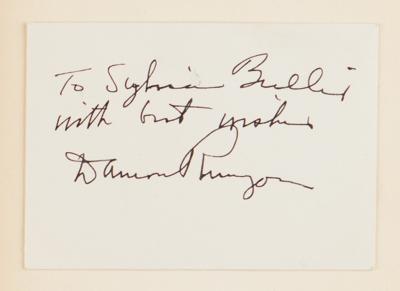 To Sylvia Bullis
with best wishes
Damon Runyon